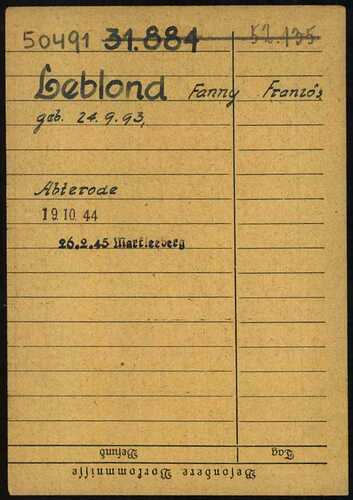 50491 31.884 52.135
Leblond Fanny Französ.
geb. 24.9.93,
Abterode
19.10.44
26.2.45 Markleeberg
Tag Befund
Besondere Vorkommnisse